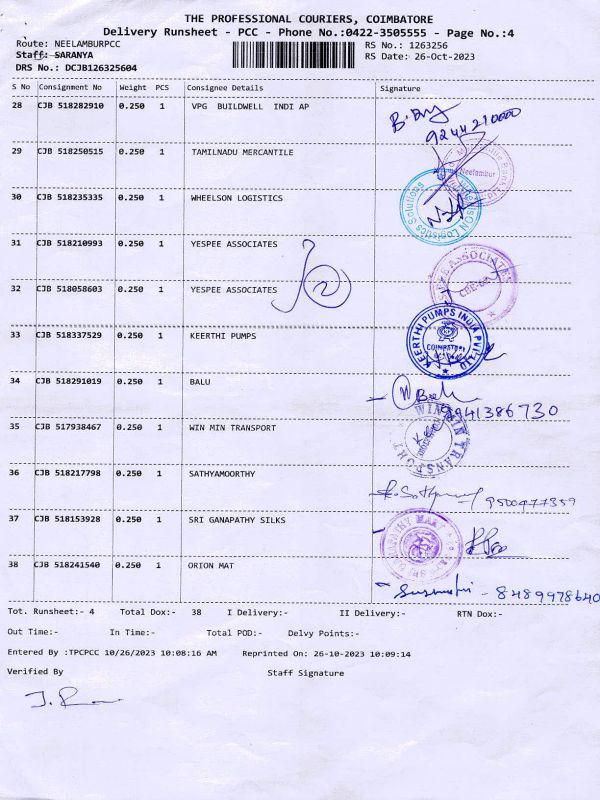 THE PROFESSIONAL COURIERS, COIMBATORE
Delivery Runsheet - PCC - Phone No.:0422-3505555 - Page No.:4
Route: NEELAMBURPCC RS No.: 1263256
Staff: SARANYA RS Date: 26-Oct-2023
DRS No.: DCJB126325604
S No Consignment No Weight PCS Consignee Details Signature
28 CJB 518282910 0.250 1 VPG BUILDWELL INDI AP
9244210000
29 CJB 518250515 0.250 1 TAMILNADU MERCANTILE
Neelambur
30 CJB 518235335 0.250 1 WHEELSON LOGISTICS
Logistics Solutions
31 CJB 518210993 0.250 1 YESPEE ASSOCIATES
32 CJB 518058603 0.250 1 YESPEE ASSOCIATES 2
33 CJB 518337529 0.250 1 KEERTHI PUMPS
KEERTHI PUMPS INDIA PVT LTD
COIMBATORE
34 CJB 518291019 0.250 1 BALU
9941386730
35 CJB 517938467 0.250 1 WIN MIN TRANSPORT
WIN MIN TRANSPORT
36 CJB 518217798 0.250 1 SATHYAMOORTHY
9500477359
37 CJB 518153928 0.250 1 SRI GANAPATHY SILKS
38 CJB 518241540 0.250 1 ORION MAT
- 8489978640
Tot. Runsheet:- 4 Total Dox:- 38 I Delivery:- II Delivery:- RTN Dox:-
Out Time:- In Time:- Total POD:- Delvy Points:-
Entered By :TPCPCC 10/26/2023 10:08:16 AM Reprinted On: 26-10-2023 10:09:14
Verified By Staff Signature